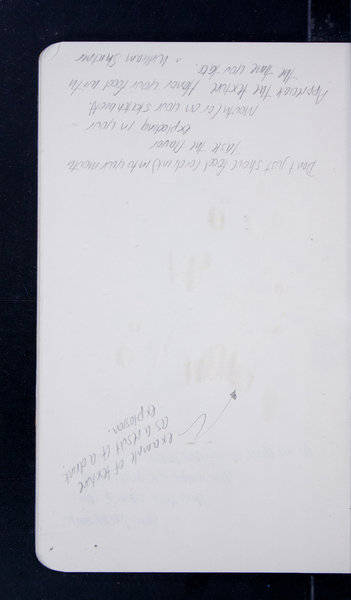 Don't just shovel food (or drink) into your mouth
Taste the flavor
exploding in your
mouth (or on your sketchbook)
Appreciate the texture. Honor your food with
the time you take.
- William Shatner
example of texture
as a result of a drink
explosion.